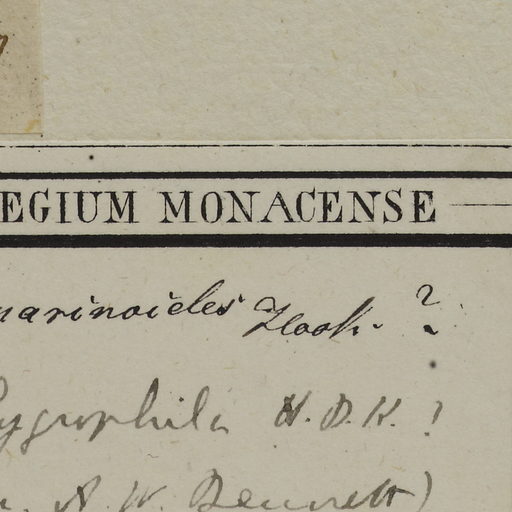 EGIUM MONACENSE
marinoides Hook. ?
hygrophila H.B.K. !
A. W. Bennett)